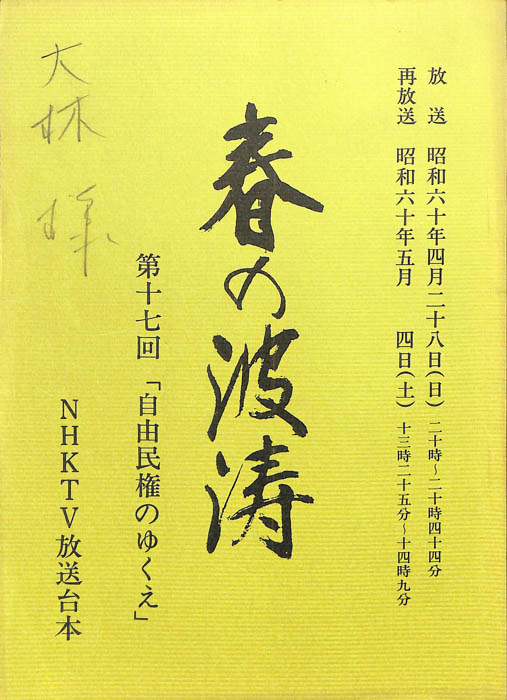 放送 昭和六十年四月二十八日(日) 二十時~二十時四十四分
再放送 昭和六十年五月 四日(土) 十三時二十五分~十四時九分
春の波涛
第十七回「自由民権のゆくえ」
NHKTV放送台本
大林 様